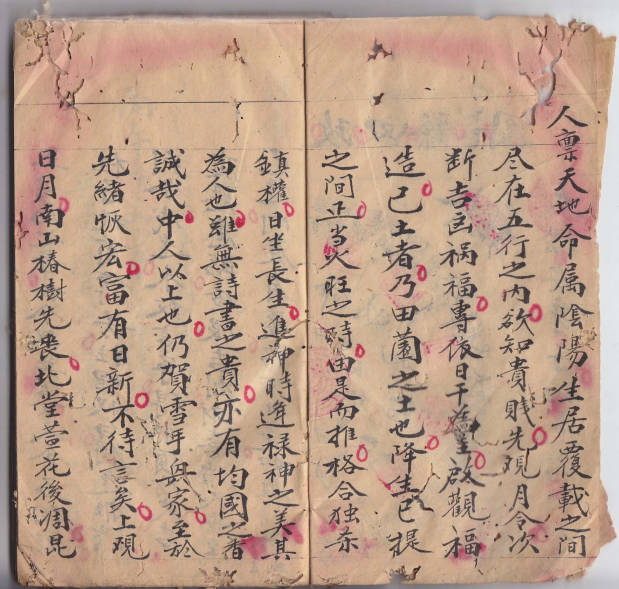 人禀天地命属陰陽生居覆載之間
尽在五行之内欲知貴賤先观月令次
断吉凶祸福專依日干為主啟觀福
造己土者乃田園之土也降生巳提
之間正当火旺之時由是而推格合独杀
鎮權日坐長生進神時逢禄神之美其
為人也雖無詩書之貴亦有均國之
誠哉中人以上也仍賀雪手與家至於
先緒恢宏富有日新不待言矣上观
日月南山椿樹先喪北堂萱花後凋昆